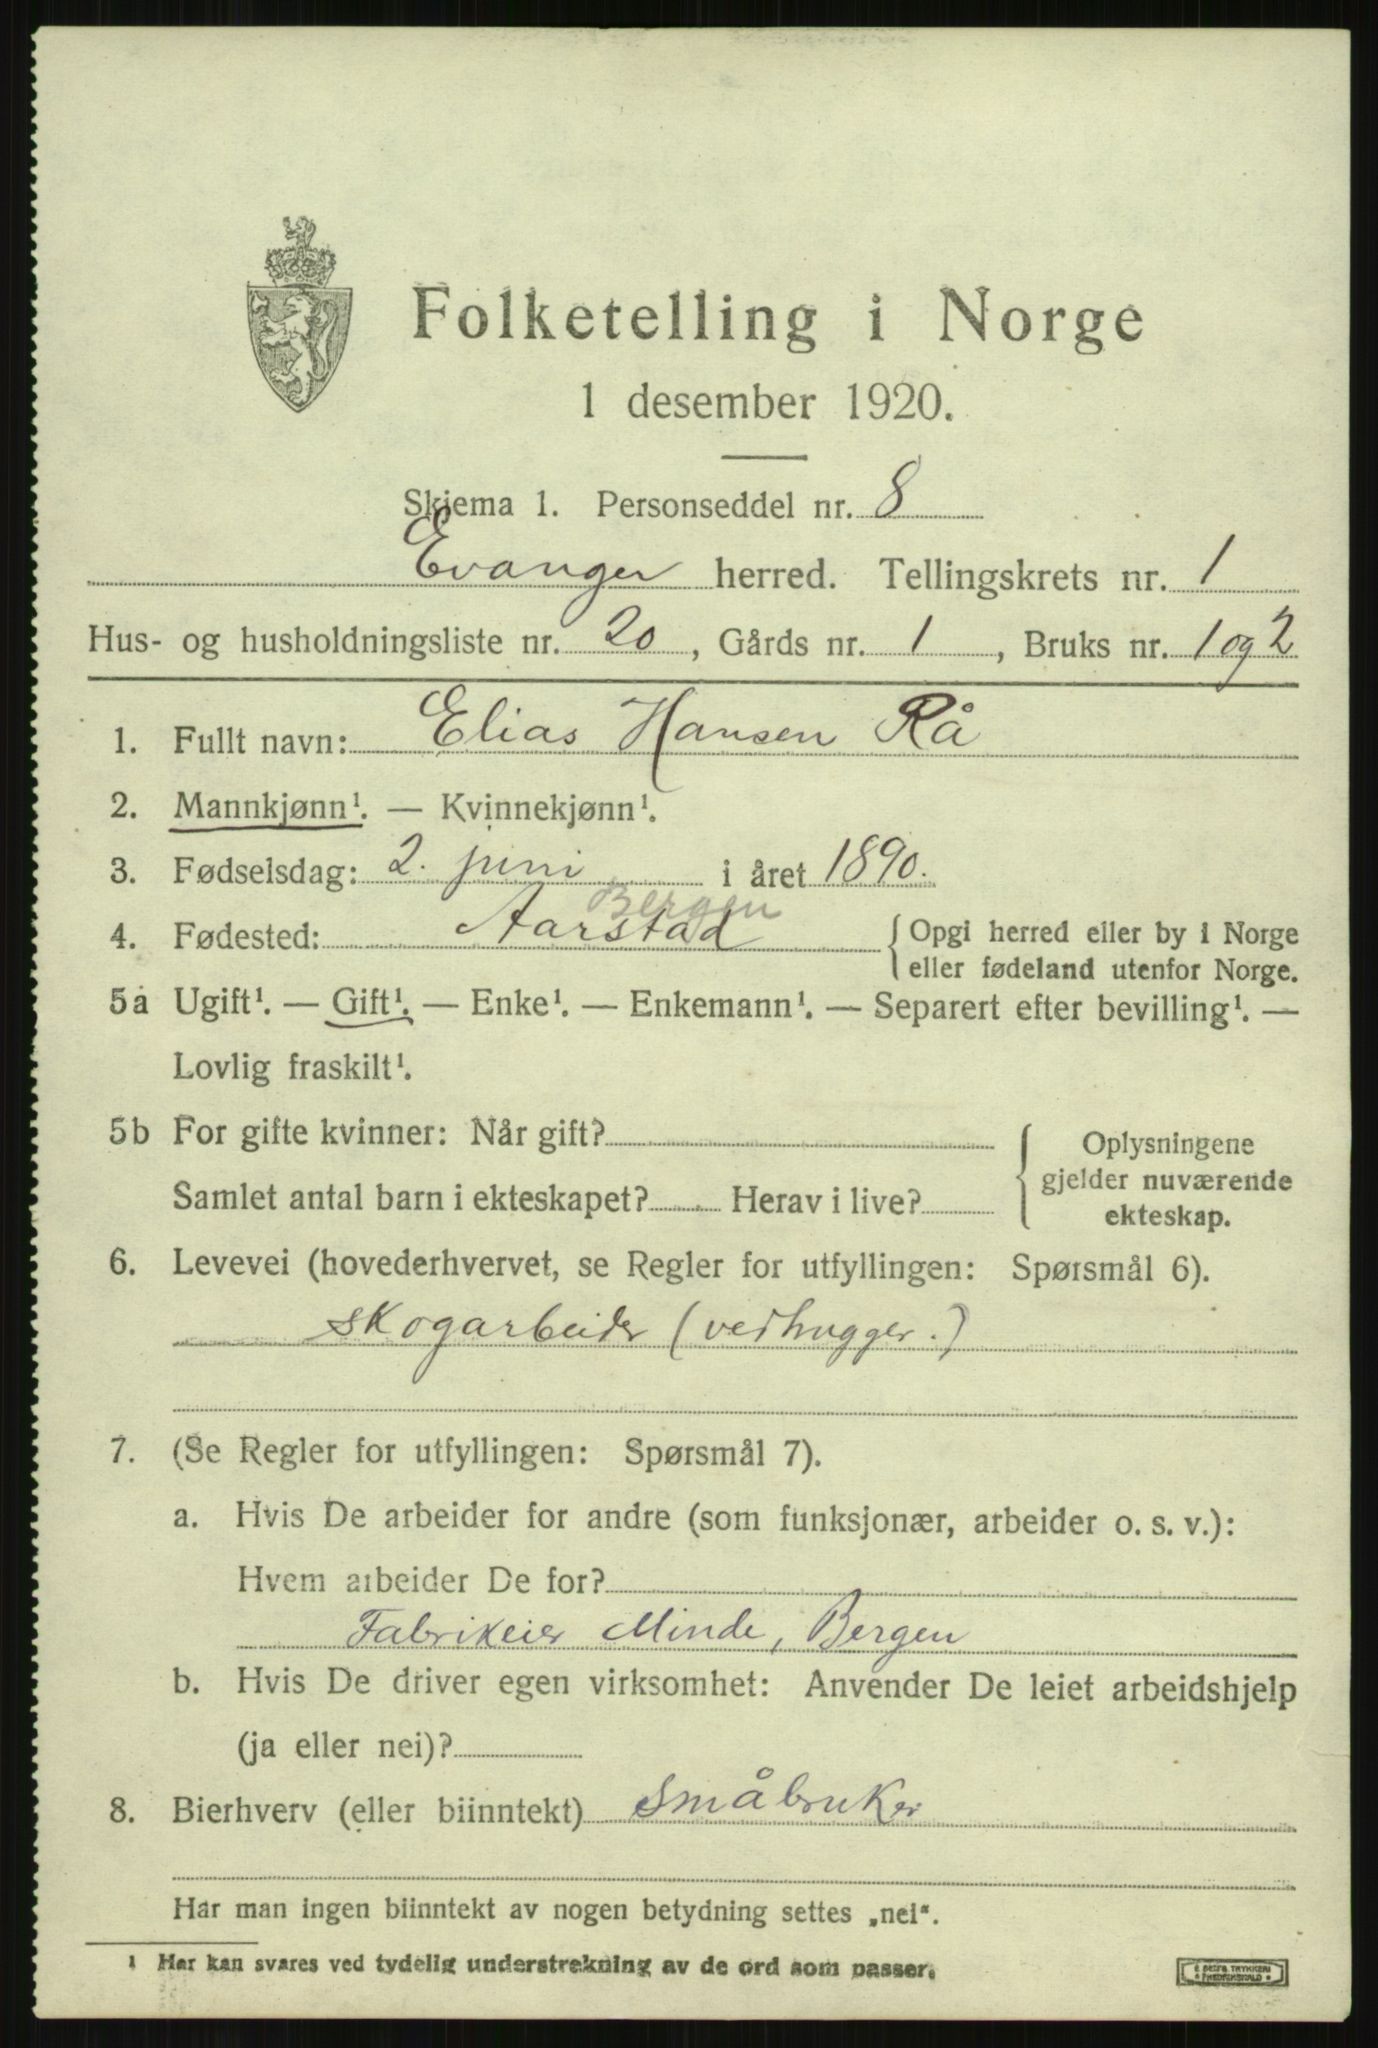 Folketelling i Norge
1 desember 1920.
Skjema 1. Personseddel nr. 8
Evanger herred. Tellingskrets nr. 1
Hus- og husholdningsliste nr. 20, Gårds nr. 1, Bruks nr. 1 og 2
1. Fullt navn: Elias Hansen Rå
2. Mannkjønn¹. — Kvinnekjønn¹.
3. Fødselsdag: 2. juni i året 1890.
Bergen
4. Fødested: Aarstad { Opgi herred eller by i Norge
eller fødeland utenfor Norge.
5a Ugift¹. — Gift¹. — Enke¹. — Enkemann¹. — Separert efter bevilling¹. —
Lovlig fraskilt¹.
5b For gifte kvinner: Når gift? { Oplysningene
gjelder nuværende
Samlet antal barn i ekteskapet? Herav i live?
ekteskap.
6. Levevei (hovederhvervet, se Regler for utfyllingen: Spørsmål 6).
skogarbeider (vedhugger.)
7. (Se Regler for utfyllingen: Spørsmål 7).
a. Hvis De arbeider for andre (som funksjonær, arbeider o. s. v.):
Hvem arbeider De for?
Fabrikeier Minde, Bergen
b. Hvis De driver egen virksomhet: Anvender De leiet arbeidshjelp
(ja eller nei)?
8. Bierhverv (eller biinntekt) småbruker
Har man ingen biinntekt av nogen betydning settes „nei“.
¹ Her kan svares ved tydelig understrekning av de ord som passer.